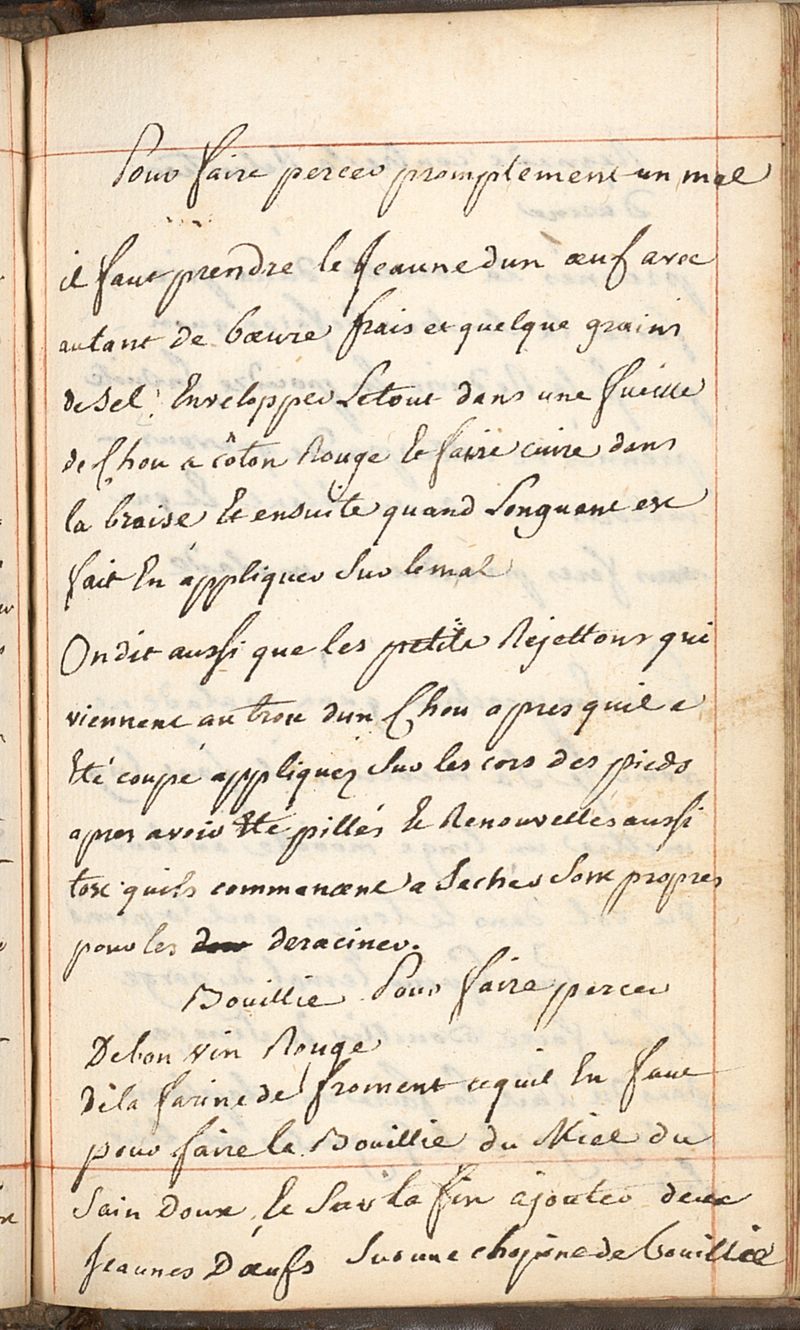 Pour faire percer promptement un mal
il faut prendre le Jeaune dun œuf avec
autant de bœure frais et quelque grains
de sel, Envelopper Letout dans une fueille
de Chou a côton Rouge Et faire cuire dans
la braise Et ensuite quand Longuant est
fait En appliquer Sur lemal
On dit aussi que les petits Rejettons qui
viennent au trou dun Chou apres quil a
Eté coupé appliquez Sur les cors des pieds
apres avoir Eté pillés Et Renouvellés aussi
tost quils commancent a Secher Sont propres
pour les deraciner.
Bouillie Pour faire percer
De bon vin Rouge
De la farine de froment ce quil En faut
pour faire la Bouillie du Miel du
Sain Doux Et Sur la fin ajouter deux
Jeaunes Dœufs Sur une chopine de bouillie